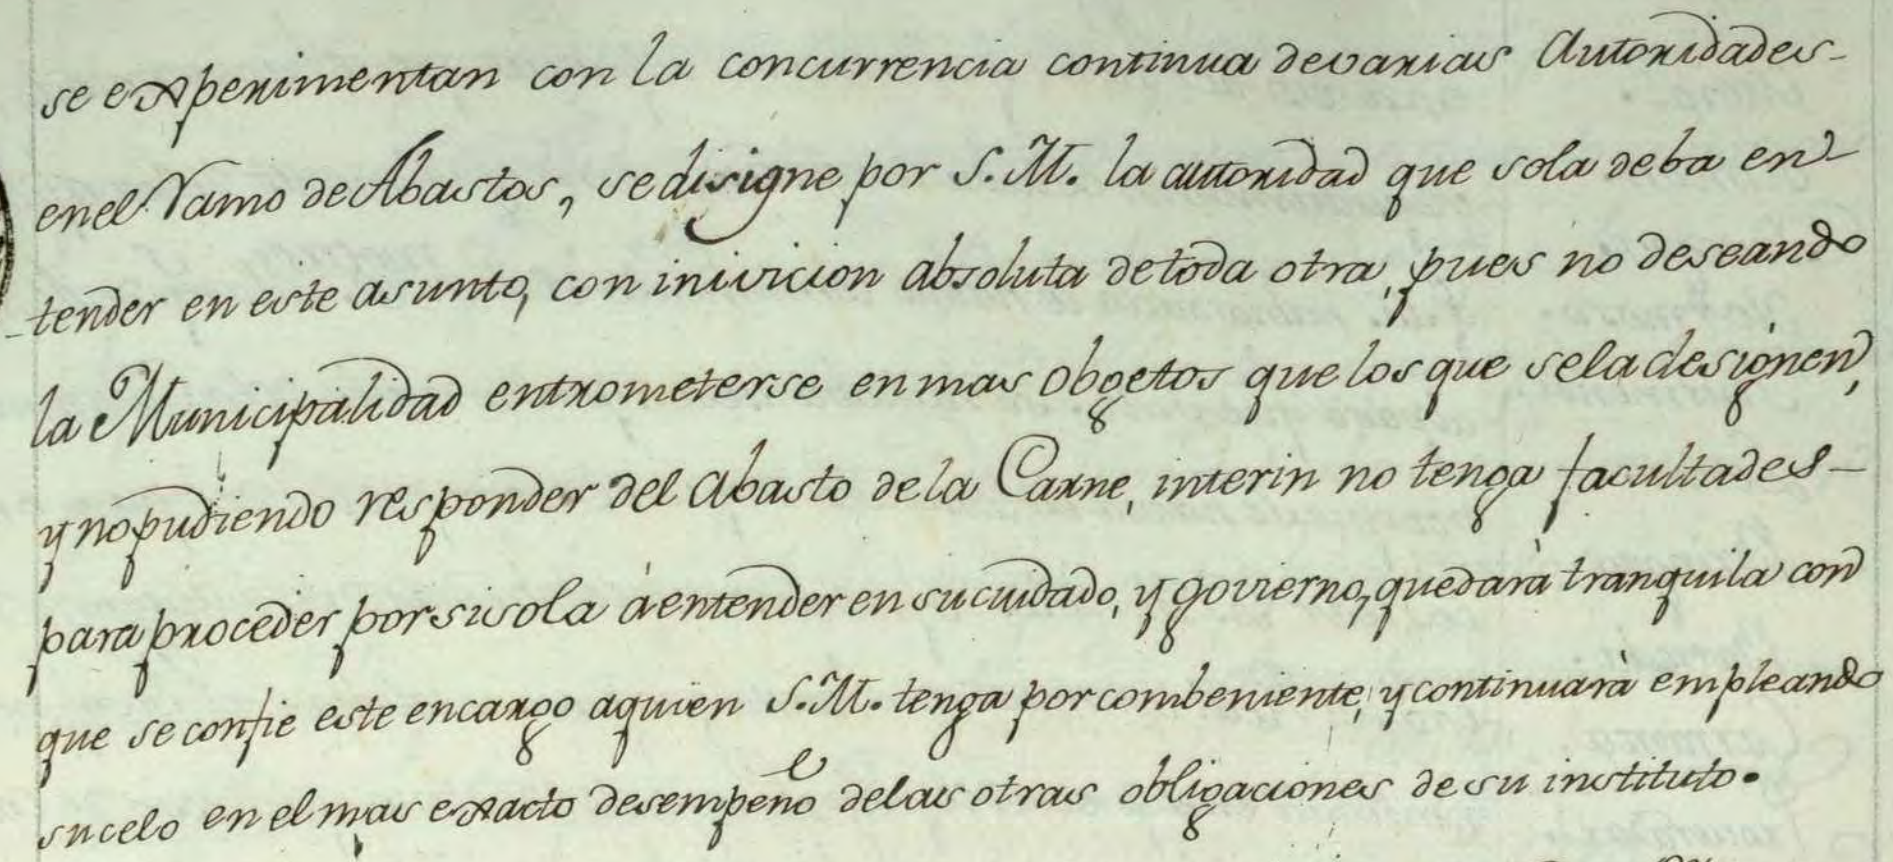 se experimentan con la concurrencia continua de varias Autoridades-
en el Ramo de Abastos, se disigne por S. M. la autoridad que sola deba en-
-tender en este asunto, con inivicion absoluta de toda otra, pues no deseando
la Municipalidad entrometerse en mas obgetos que los que se la designen,
y no pudiendo responder del Abasto de la Carne, interin no tenga facultades-
para proceder por si sola á entender en su cuidado, y govierno, quedarà tranquila con
que se confie este encargo a quien S. M. tenga por combeniente, y continuarà empleando
su celo en el mas exacto desempeño de las otras obligaciones de su instituto.